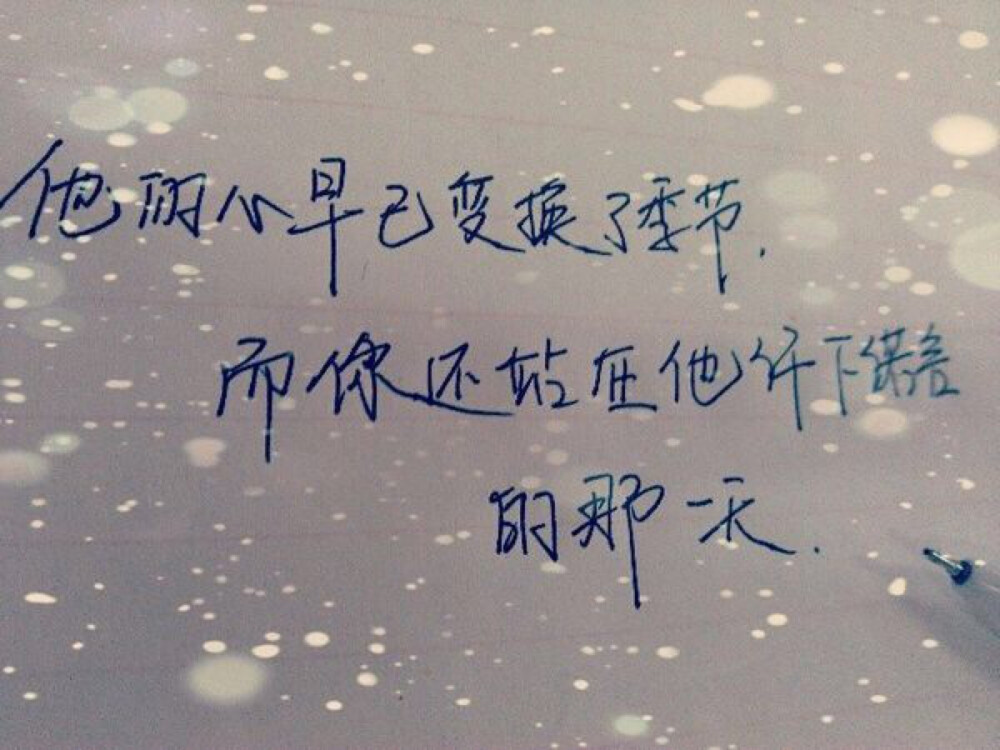 他的心早已变换了季节,
而你还站在他许下诺言
的那一天.